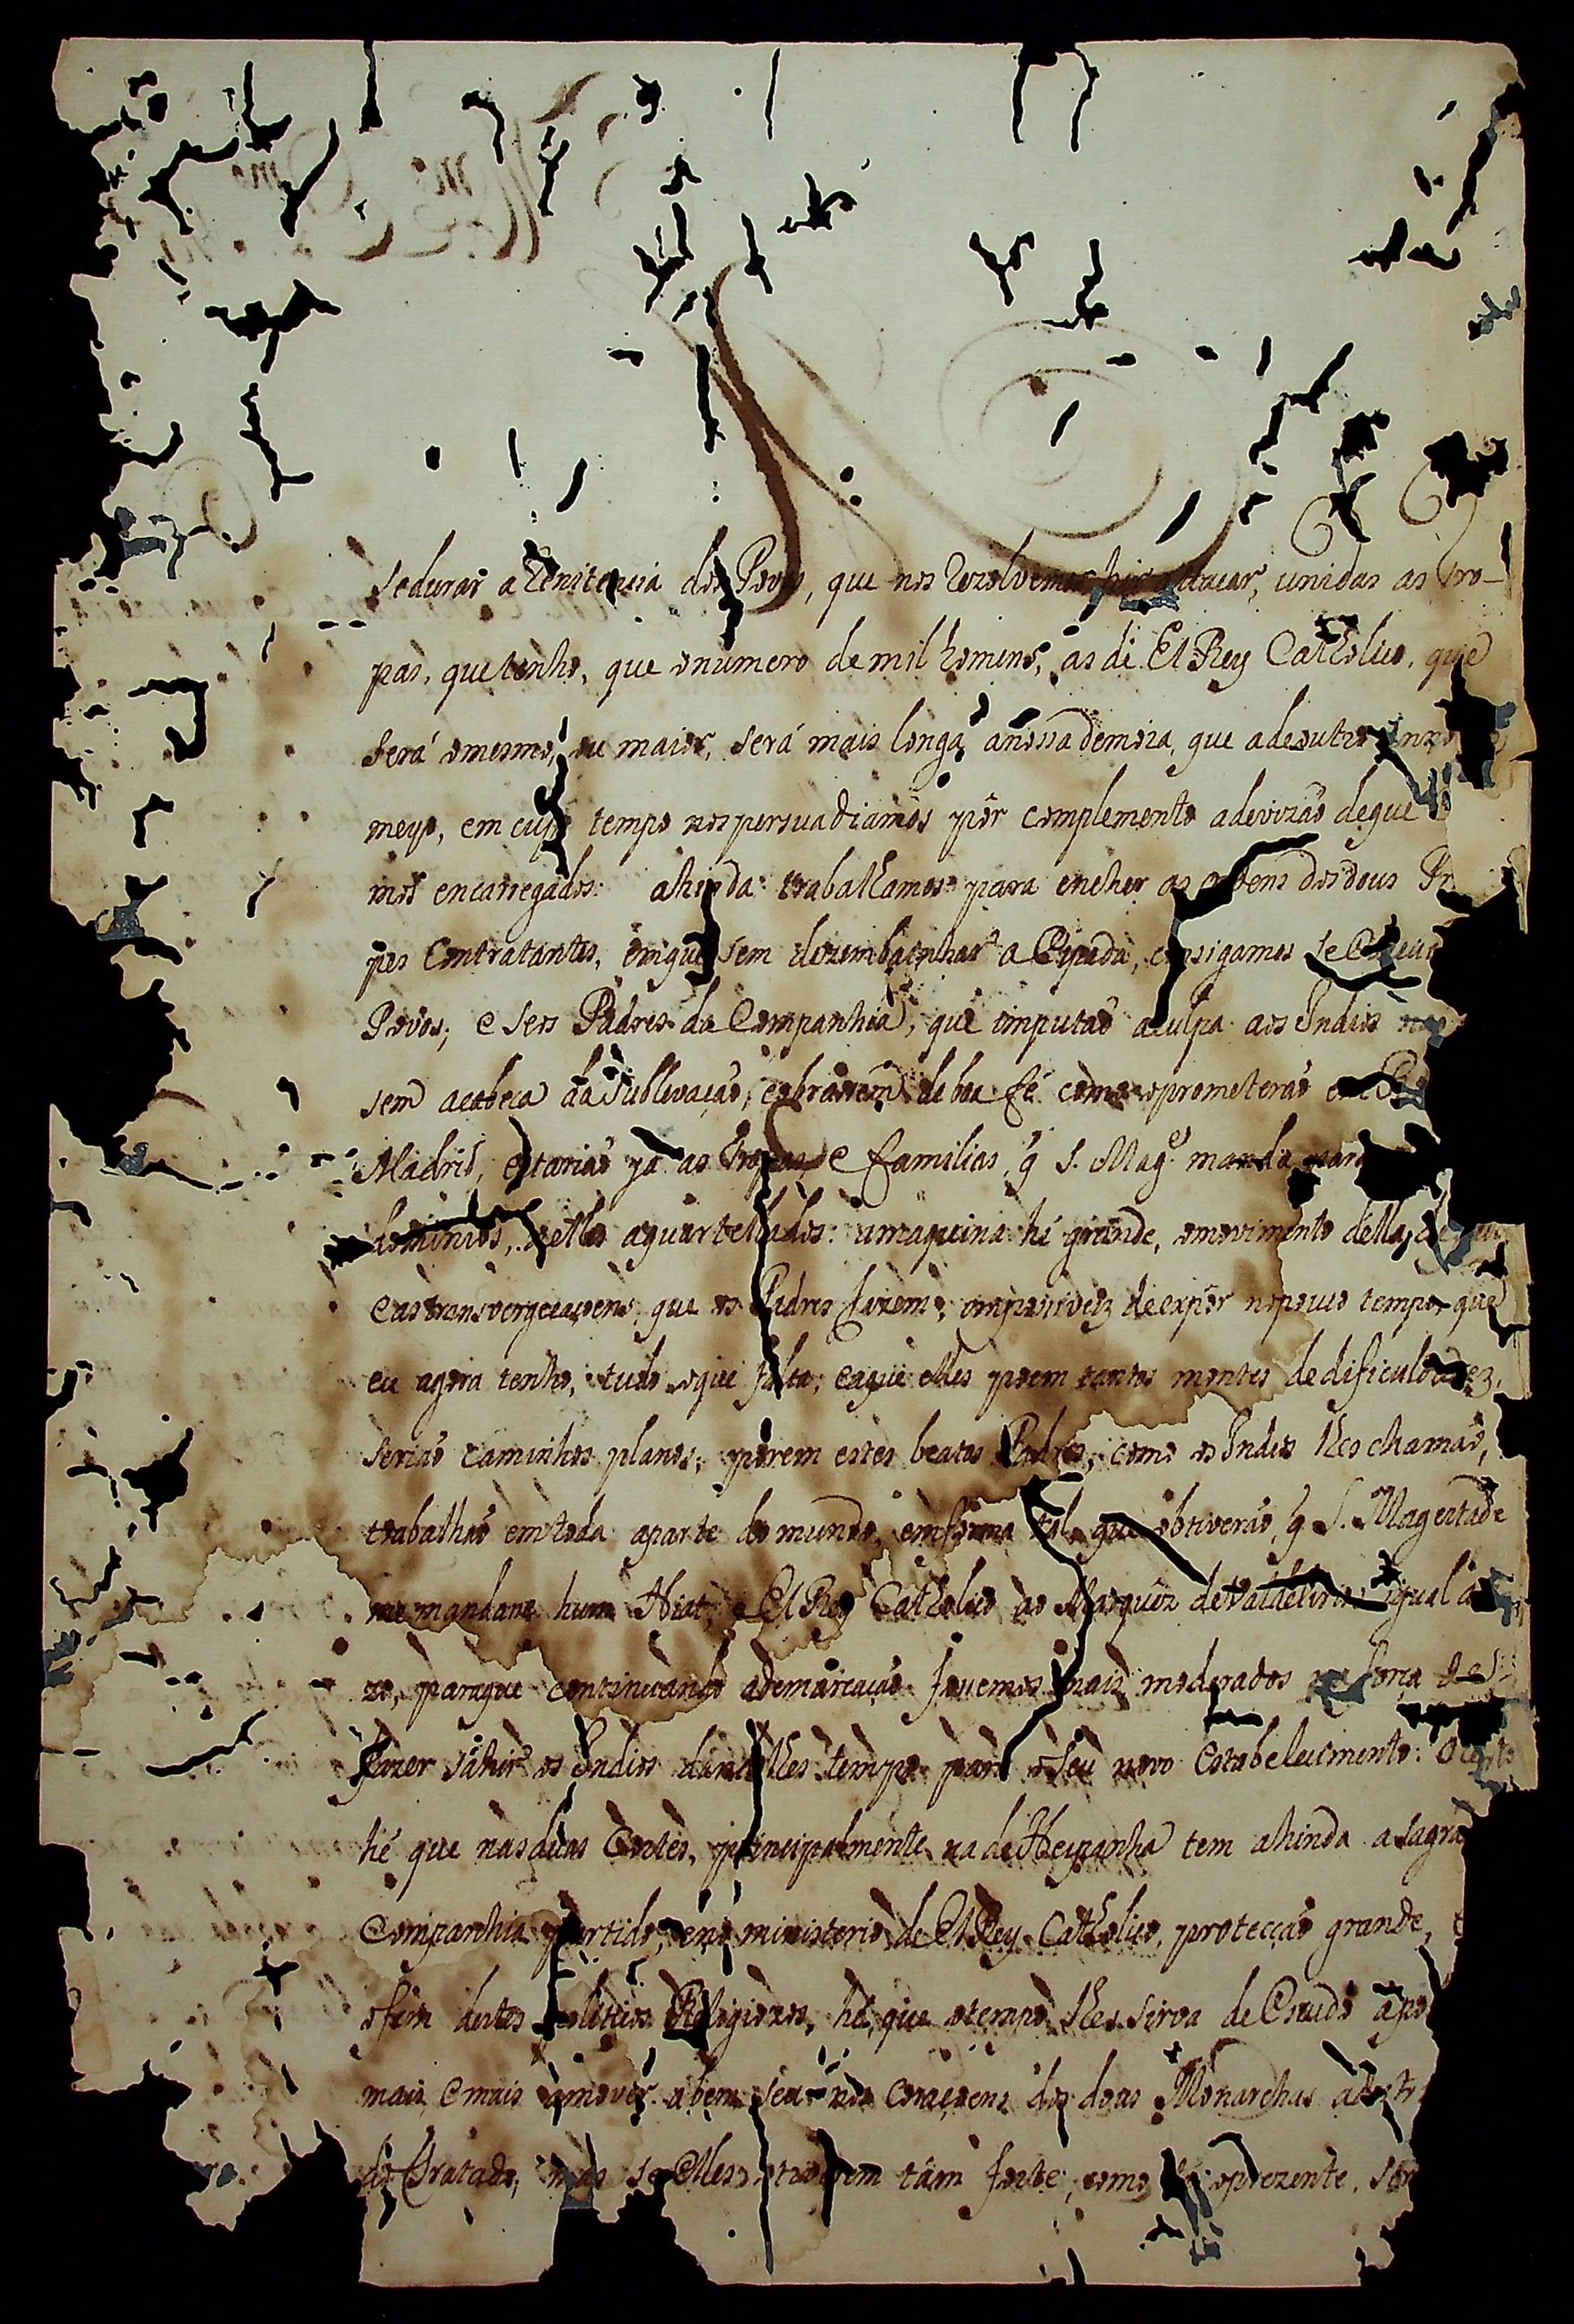 se durar a rezistencia dos Povos, que nos rezolvemos hir atacar, unidas as Tro-
pas, que tenho, que o numero de mil homens, as di El Rey Catholico, que
será o mesmo, ou maior, será mais longa a nossa demora, que a de outro
meyo, em cujo tempo nos persuadiamos pôr complemento a devizaõ de que
mos encarregados: ahinda trabalhamos para encher as ordens dos dous
pes Contratantes, em que sem dezembainhar a Espada, consigamos
Povos; e se os Padres da Companhia, que imputaõ a culpa aos Indios
sem a cabeca da sublevaçaõ, e obrassem de boa fé como o prometeraõ em
Madrid, estariaõ ja as Tropas, e familias, q S. Mag.e manda para
dominios, nelles aquartelados: a maquina hé grande, o movimento della,
e as transvergeraçoens, que os Padres fazem, impossivel de expôr no pouco tempo que
eu agora tenho, tudo o que falta, e a que elles poem tantos montes de dificuldadez,
seriaõ caminhos planos; porem estes beatos Padres, como os Indios lhes chamaõ,
trabalhaõ em toda a parte do mundo, em forma tal, que obtiveraõ, q S. Magestade
me mandase hum Hiat, e El Rey Catholico ao Marquez de Valdelirios igual
zo, para que continuando a demarcaçaõ fossemos mais moderados na força de
fazer sahir os Indios dandolhes tempo para o seu novo Estabelecimento: O certo
hé que nas duas Cortes, principalmente na de Hespanha tem ahinda a sagrada
Companhia partido, e no ministerio de El Rey Catholico, protecçaõ grande,
o fim destes politicos Religiozos, hé, que o tempo lhes sirva de Escudo
mais, e mais a mover a bem seu nos Coraçoens dos dous Monarchas
do Tratado, mas se elles o tiverem tam forte, como hé o prezente,